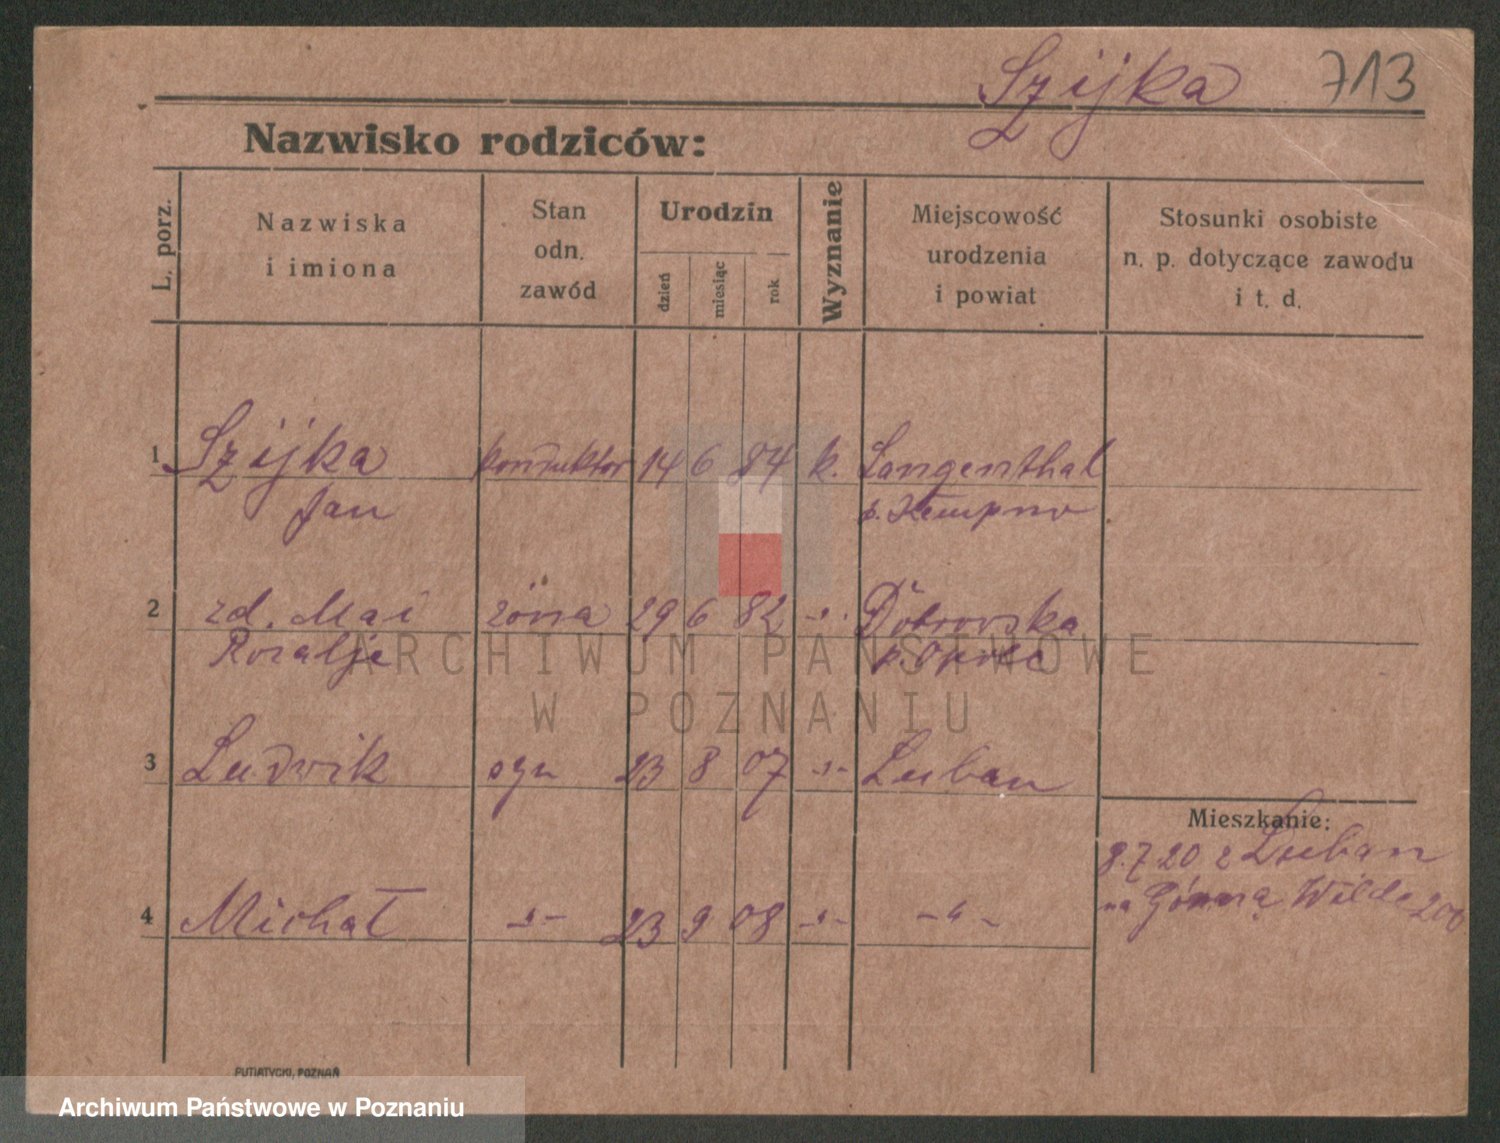 Szijka 713
Nazwisko rodziców:
L. porz.
Nazwiska
i imiona
Stan
odn.
zawód
Urodzin
dzień
miesiąc
rok
Wyznanie
Miejscowość
urodzenia
i powiat
Stosunki osobiste
n. p. dotyczące zawodu
i t. d.
1 Szijka konduktor 14 6 84 k. Langenthal
Jan p. Kempno
2 zd. Mai żona 29 6 82 -"-
Rozalje
3 Ludwik syn 23 8 07 -"- Luban
Mieszkanie:
8.7.20 z Luban
na Górną Wilde 200
4 Michał -"- 23 9 08 -"- -"-
PUTIATYCKI, POZNAŃ
ARCHIWUM PAŃSTWOWE
W POZNANIU
Archiwum Państwowe w Poznaniu